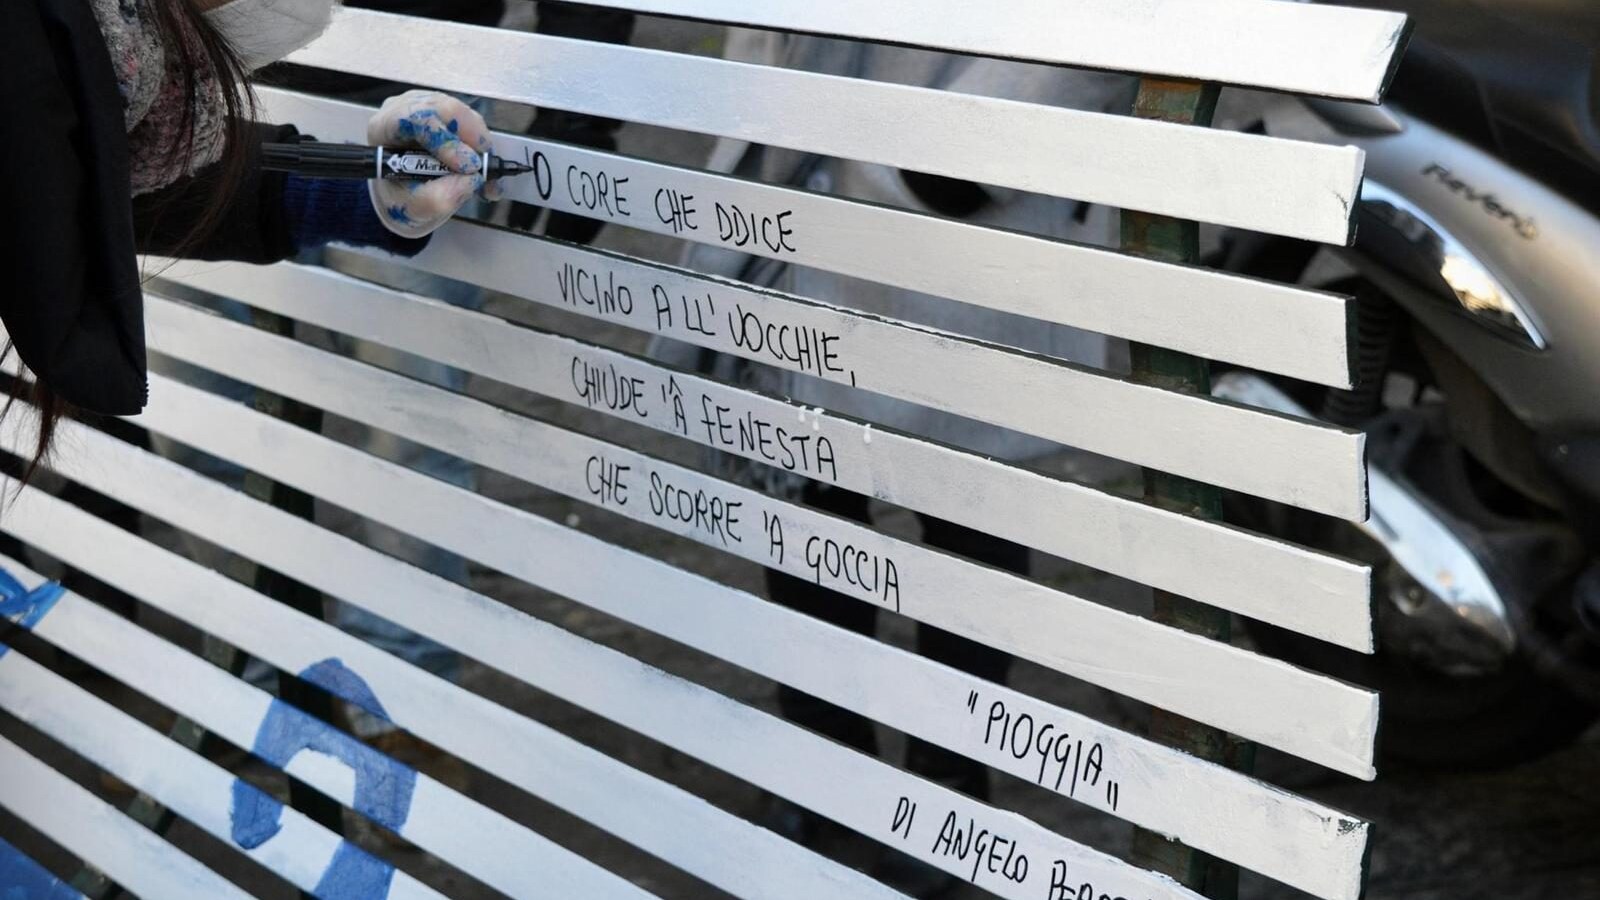 'O CORE CHE DDICE
VICINO ALL' UOCCHIE,
CHIUDE 'Â FENESTA
CHE SCORRE 'A GOCCIA
"PIOGGIA"
DI ANGELO
Mark